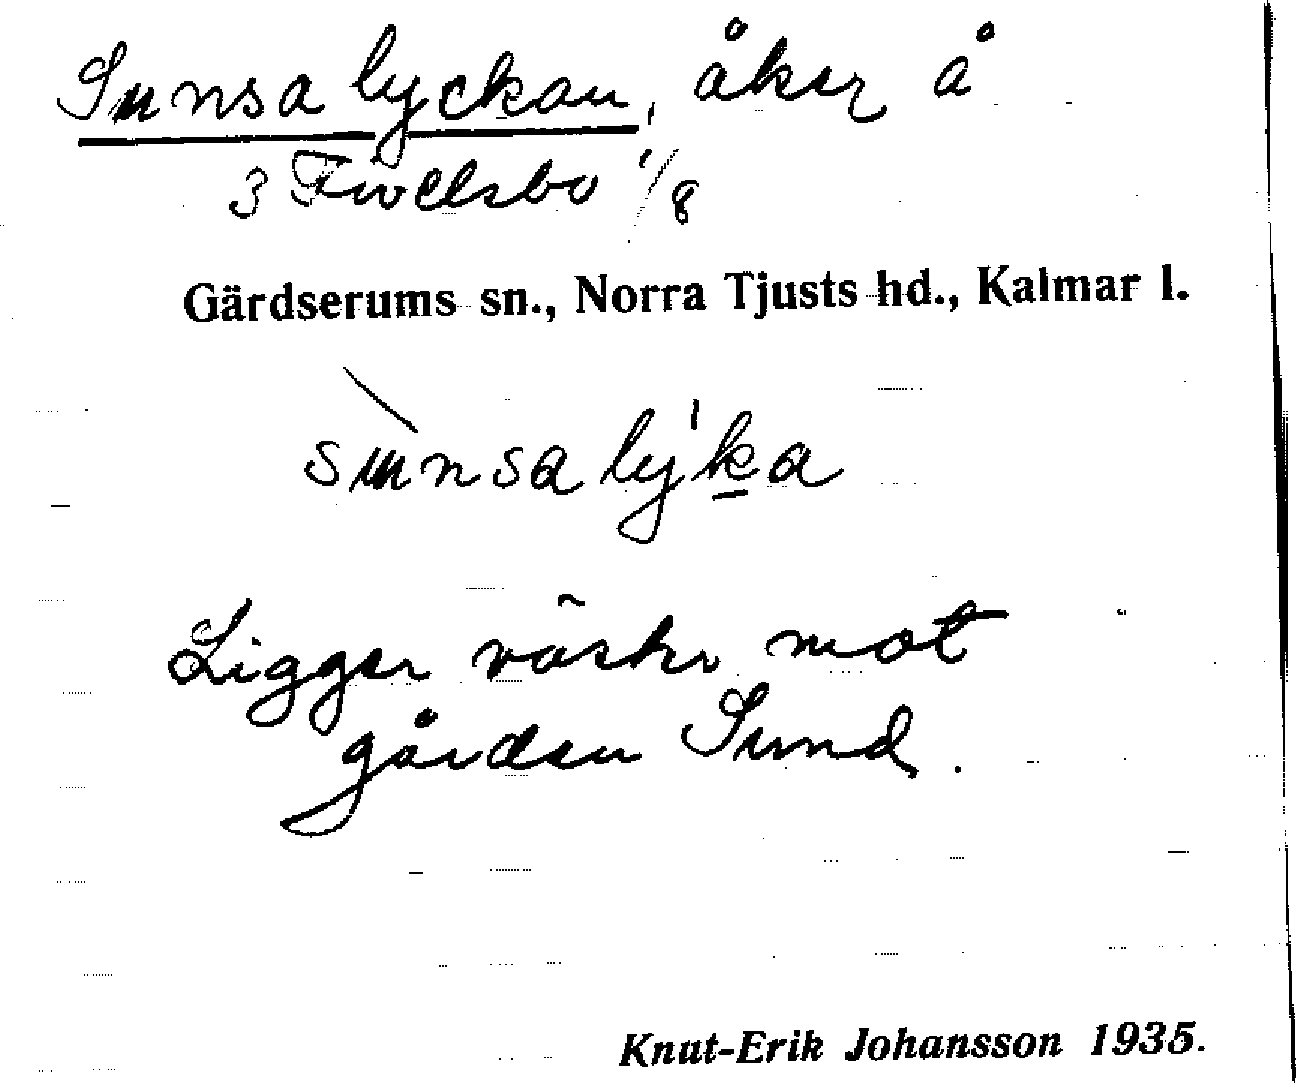 Sunsalyckan, åker å
3 Fivelsbo 1/8
Gärdserums sn., Norra Tjusts hd., Kalmar l.
sùnsaly'ka
Ligger väster mot
gården Sund.
Knut-Erik Johansson 1935.